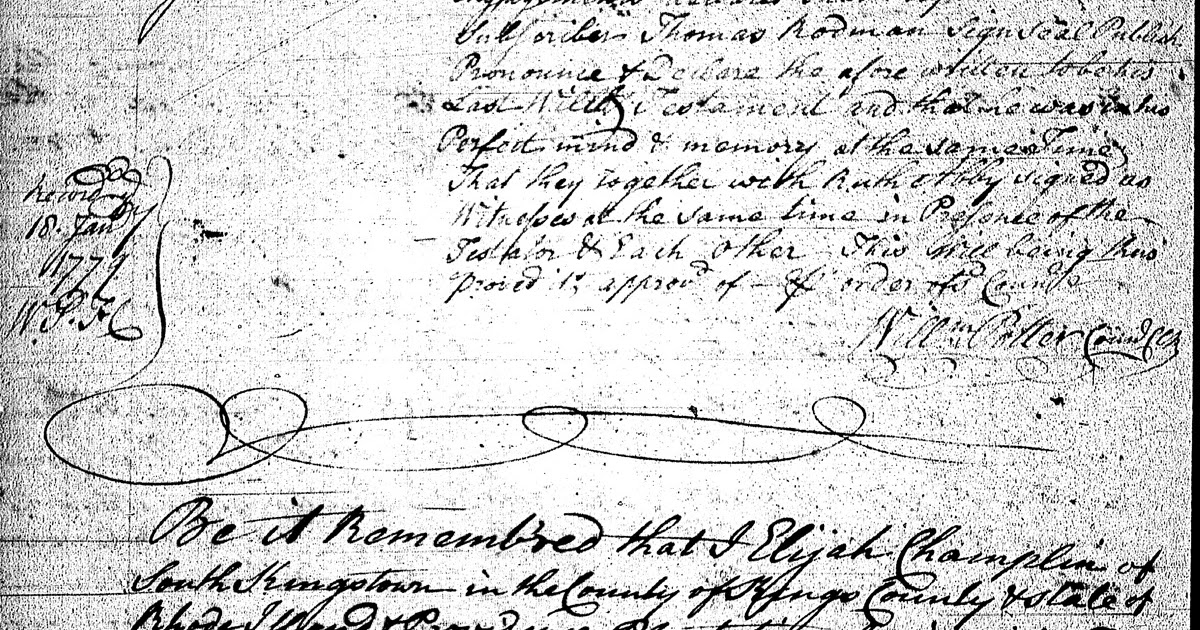 Subscriber Thomas Rodman Sign Seal Publish
Pronounce & Declare the afore written to be his
Last Will & Testament and that he was in his
Perfect mind & memory at the same Time
That they together with Ruth Abby signed as
Witnesses at the same time in Presence of the
Testator & Each Other This Will being thus
Proved is approvd of — & order of sd Council
Willm Potter Council Clk
Recorded
18. Jany
1779
W. P. Clk
Be it Remembred that I Elijah Champlin of
South Kingstown in the County of Kings County & State of
Rhode Island & Providence